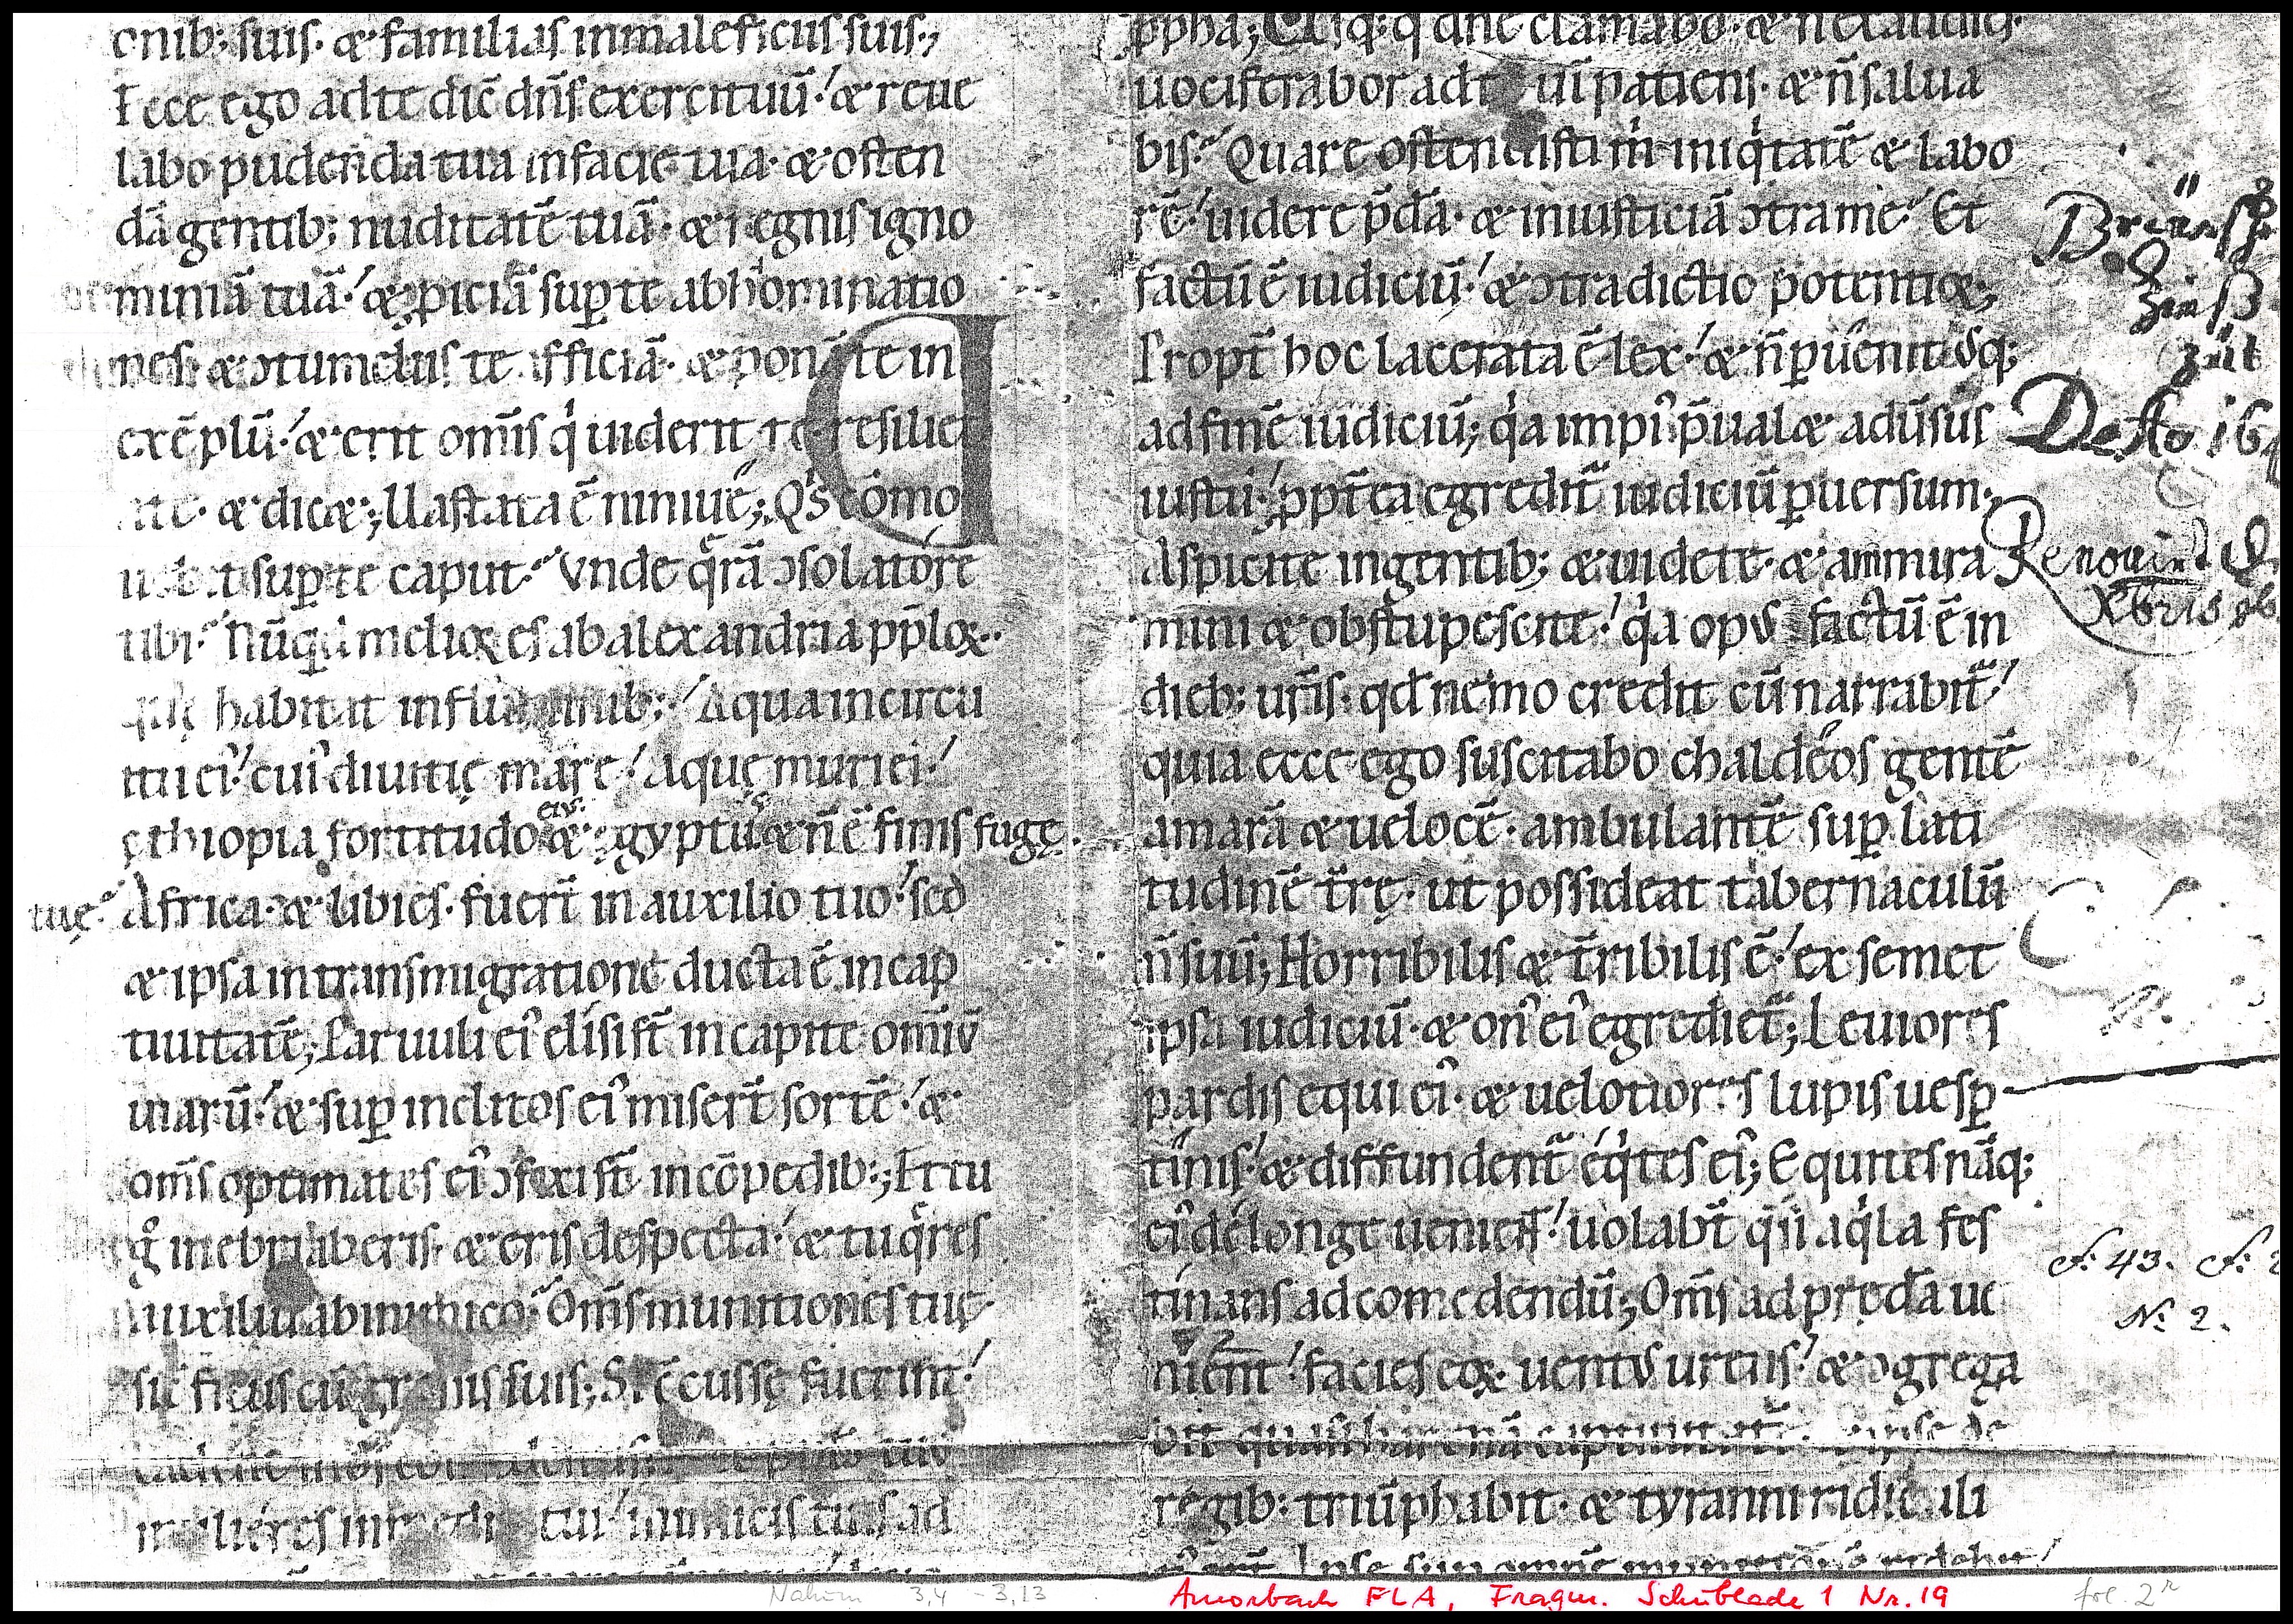 onib; suis· & familias in maleficiis suis·,
Ecce ego ad te dic̄ dn̄s exercituū·! & reue
labo pudenda tua in facie tua· & osten
dā gentib; nuditatē tuā· & regnis igno
miniā tuā·! & ꝓiciā suꝑ te abhominatio
nes & ↄtumeliis te afficiā· & ponā te in
exēplū·! & erit om̄is q̇ uiderit te resiliet
a te· & dic&; Uastata ē niniue; Q's cōmo
uebit suꝑ te caput· Vnde q̄rā ↄsolatorē
tibi· Nūquid melioꝝ es ab alexandria pp̄loꝝ·
quę habitat in fluminib;·! Aqua in circu
itu ei᾽· cui᾽ diuitię mare! Aquę muri ei᾽·
ęthiopia fortitudo ei᷒· & ęgyptu᷒ & n̄ ē finis fugę·
tuę· Africa· & libies· fuer̄t in auxilio tuo·! sed
& ipsa in transmigrationē ducta ē in cap
tiuitatē; Paruuli ei᾽ elisi st̄ in capite om̄iū
uiarū·! & suꝑ inclitos ei᾽ miser̄t sortē·! &
om̄s optimates ei᾽ ↄfixi st̄ in cōpedib:; Et tu
g̊ inebriaberis· & eris despecta·! & tu q̄res
auxiliū ab inimico· Om̄s munitiones tuę·
sic̄ ficus cū grossis suis; Si ↄcussę fuerint·!
mulieres in medio tui·! inimicis tuis ad
ꝓpha; Usq; q° dn̄e clamabo· & n̄ exaudies·
uociferabor ad te uī patiens· & n̄ salua
bis· Quare ostendisti m̄ iniq̇tatē & labo
rē·! uidere p̄dā· & iniusticiā ↄtra me· Et
factū ē iudiciū·! & ↄtradictio potentior;
Propt̄ hoc lacerata ē lex·! & n̄ ꝑuenit usq;
ad finē iudiciū; q̇a impi᾽ p̄ual& adūsus
iustū·! ꝓpt̄ea egredit̄ iudiciū ꝑuersum·,
Aspicite in gentib; & uidete· & ammira
mini & obstupescite·! q̇a opus factū ē in
dieb; ur̄is· qd̄ nemo credit cū narrabit̄·!
quia ecce ego suscitabo chaldeos gentē
amarā & uelocē· ambulantē suꝑ lati
tudinē t̄rę· ut possideat tabernaculū
n̄ suū; Horribilis & t̄ribilis ē·! ex semet
ipsa iudiciū· & on᾽ ei᾽ egrediet̄; Leuiores
pardis equi ei᾽· & uelotiores lupis uesꝑ
tinis·! & diffundent̄ eq̇tes ei᾽; Equites nāq;
ei᾽ de longe uenient·! uolabt̄ q̄si aq̇la fes
tinans ad comedendū; Om̄s ad prędā ue
niēnt·! facies eoꝝ uentus urens·! & ↄgrega
bit quasi harenā captiuitatē· & ipse de
regib: triūphabit· & tyranni ridiculi
Desto 16
Renouirt
Xbris
F. 43. F.
N: 2.
Nahum 3,4 - 3,13
Amorbach FLA, Fragm. Schublade 1 Nr. 19
fol. 2ʳ